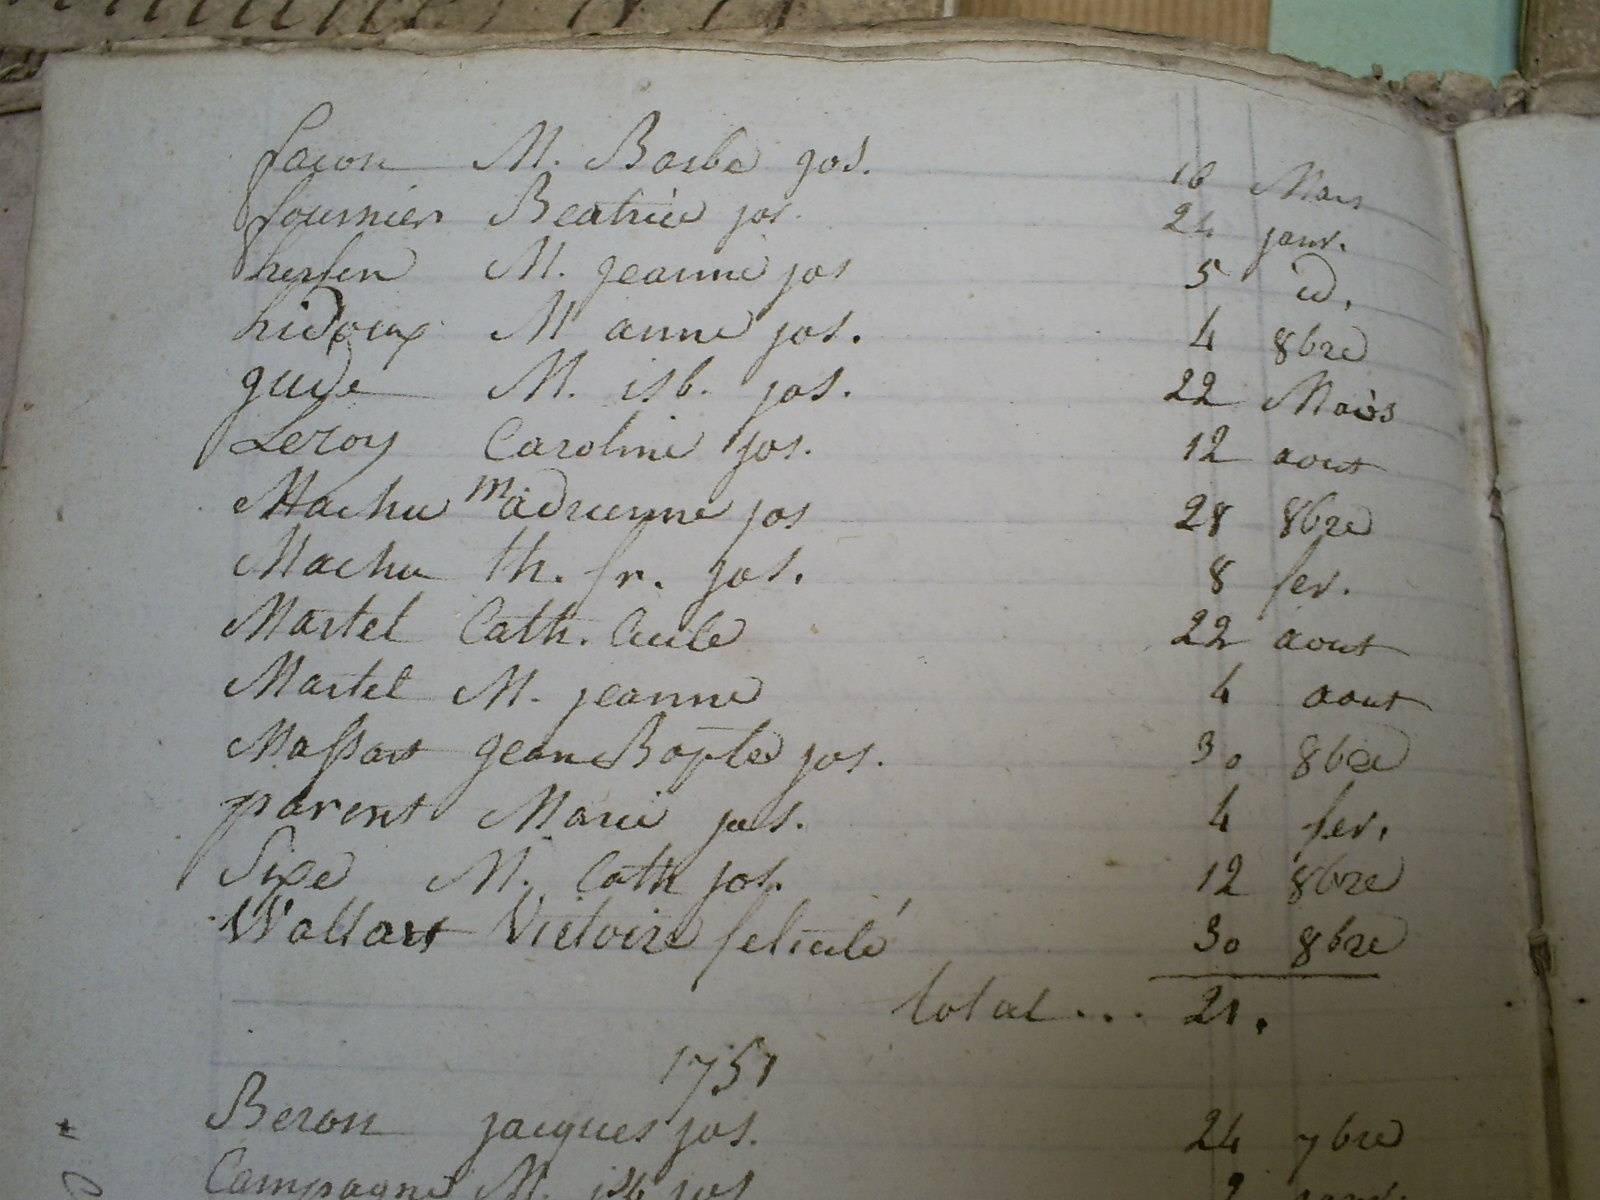 facon M. Barbe jos. 16 Mars
fournier Beatrice jos. 24 janv.
herlen M. jeanne jos 5 id.
hidoux M anne jos. 4 8bre
guide M. isb. jos. 22 Mars
Leroy Caroline jos. 12 aout
Machu M adrienne jos 28 8bre
Machu th. fr. jos. 8 fev.
Martel Cath. Cecile 22 aout
Martel M. jeanne 4 aout
Massart jean Bapte jos. 30 8bre
parent Marie jos. 4 fev.
Sixe M. Cath jos. 12 8bre
Wallart Victoire felicité 30 8bre
total... 21.
1751
Beron jacques jos. 24 7bre
Campagne M. isb jos 2